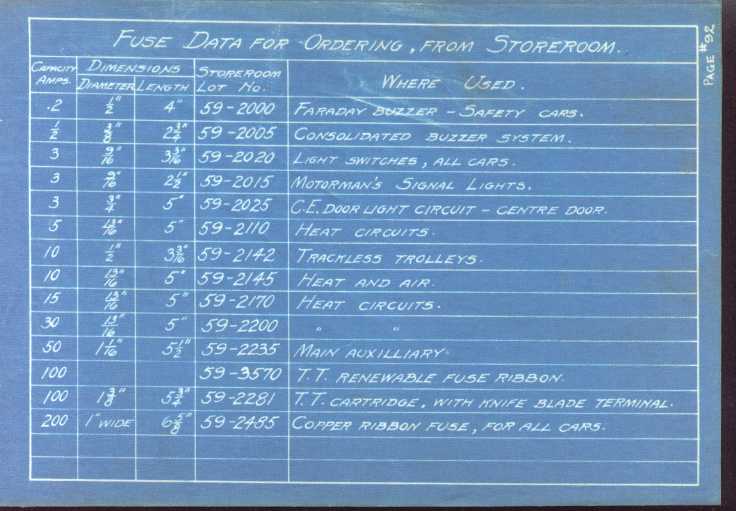 PAGE #92
FUSE DATA FOR ORDERING, FROM STOREROOM.
CAPACITY AMPS. DIMENSIONS DIAMETER LENGTH STOREROOM LOT NO. WHERE USED.
.2 1/2" 4" 59-2000 FARADAY BUZZER - SAFETY CARS.
1/2 3/8" 2 3/4" 59-2005 CONSOLIDATED BUZZER SYSTEM.
3 9/16" 3 3/16" 59-2020 LIGHT SWITCHES, ALL CARS.
3 9/16" 2 1/2" 59-2015 MOTORMAN'S SIGNAL LIGHTS.
3 3/4" 5" 59-2025 C.E. DOOR LIGHT CIRCUIT - CENTRE DOOR.
5 13/16" 5" 59-2110 HEAT CIRCUITS.
10 1/2" 3 3/16" 59-2142 TRACKLESS TROLLEYS.
10 13/16" 5" 59-2145 HEAT AND AIR.
15 13/16" 5" 59-2170 HEAT CIRCUITS.
30 13/16" 5" 59-2200 " "
50 1 1/16" 5 1/2" 59-2235 MAIN AUXILLIARY.
100 59-3570 T.T. RENEWABLE FUSE RIBBON.
100 1 3/8" 5 3/4" 59-2281 T.T. CARTRIDGE, WITH KNIFE BLADE TERMINAL.
200 1" WIDE 6 5/8" 59-2485 COPPER RIBBON FUSE, FOR ALL CARS.